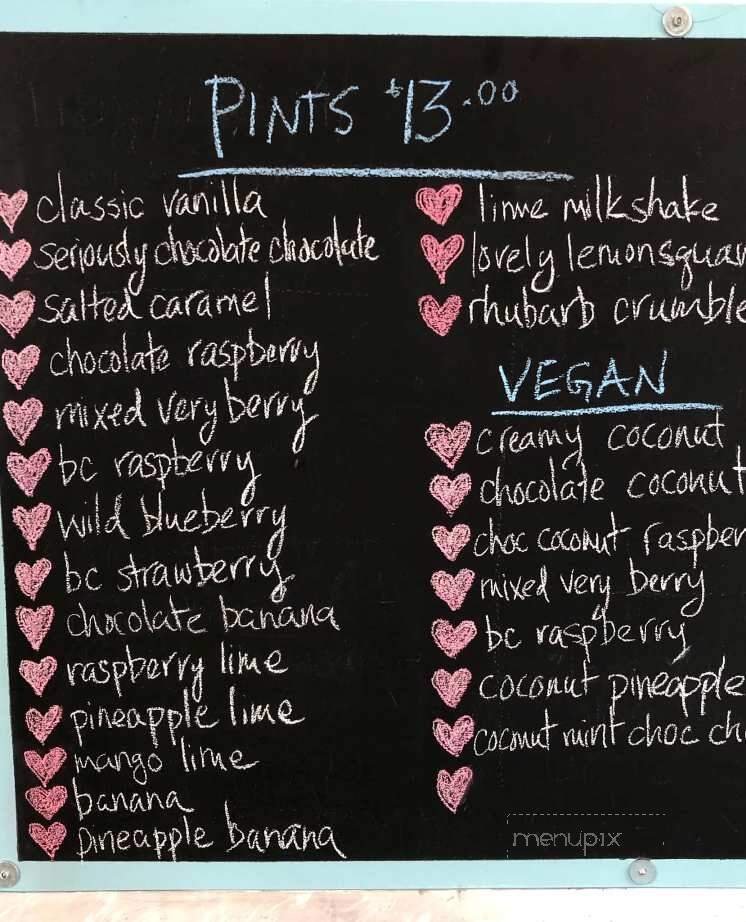 PINTS $13.00
classic vanilla
seriously chocolate chocolate
salted caramel
chocolate raspberry
mixed very berry
bc raspberry
wild blueberry
bc strawberry
chocolate banana
raspberry lime
pineapple lime
mango lime
banana
pineapple banana
lime milkshake
lovely lemonsquar
rhubarb crumble
VEGAN
creamy coconut
chocolate coconut
choc coconut raspber
mixed very berry
bc raspberry
coconut pineapple
coconut mint choc ch
menupix